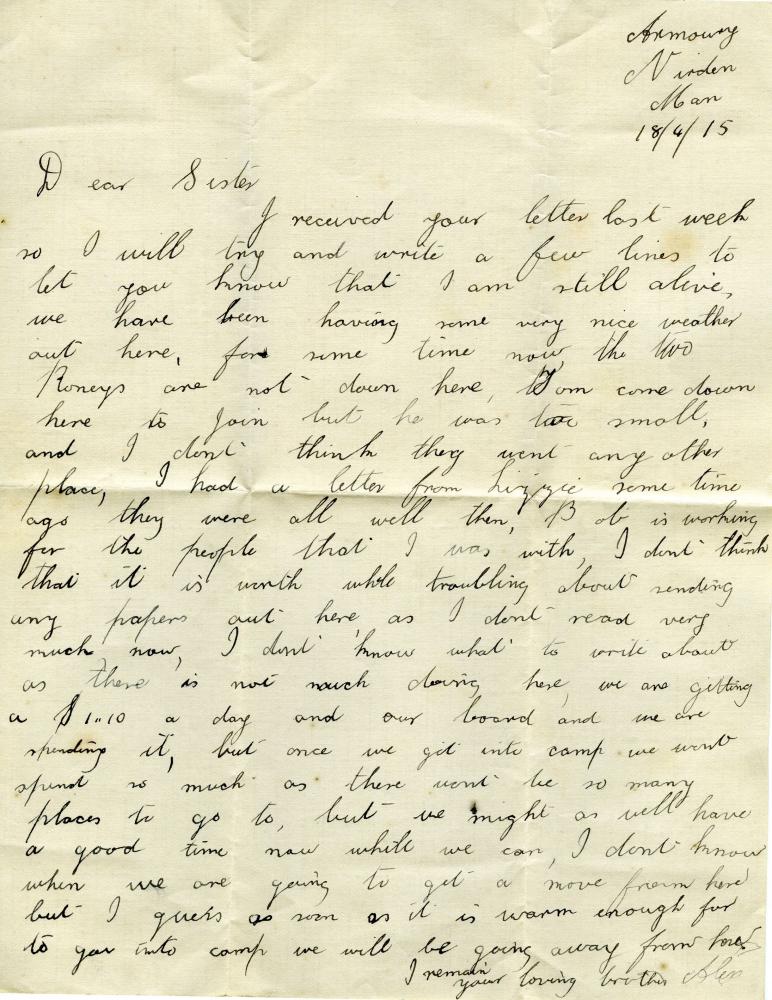 Armoury
Virden
Man
18/4/15
Dear Sister
I received your letter last week
so I will try and write a few lines to
let you know that I am still alive,
we have been having some very nice weather
out here, for some time now, the two
Roneys are not down here, Tom come down
here to join but he was too small,
and I dont think they went any other
place, I had a letter from Lizzie some time
ago they were all well then, Bob is working
for the people that I was with, I dont think
that it is worth while troubling about sending
any papers out here as I dont read very
much now, I dont know what to write about
as there is not much doing here, we are gitting
a $1.10 a day and our board and we are
spending it, but once we git into camp we wont
spend so much as there wont be so many
places to go to, but we might as well have
a good time now while we can, I dont know
when we are going to git a move from here
but I guess as soon as it is warm enough for
to go into camp we will be going away from here
I remain
your loving brother Alex